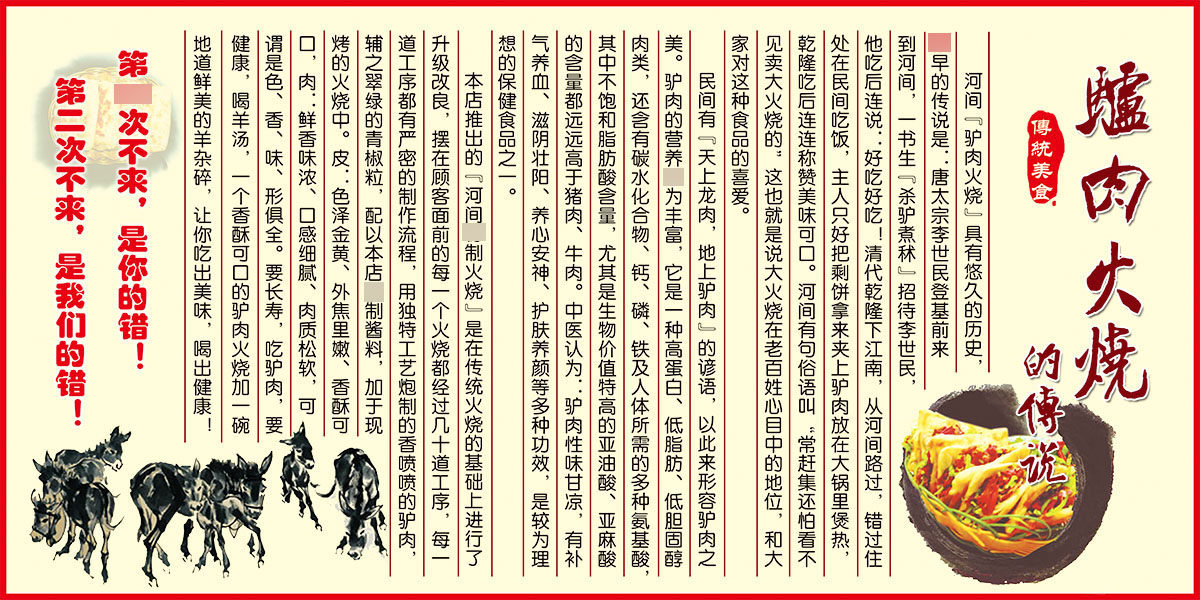 驢肉火燒
的傳説
傳統美食
河间『驴肉火烧』具有悠久的历史，
早的传说是：唐太宗李世民登基前来
到河间，一书生『杀驴煮秫』招待李世民，
他吃后连说：好吃好吃！清代乾隆下江南，从河间路过，错过住
处在民间吃饭，主人只好把剩饼拿来夹上驴肉放在大锅里煲热，
乾隆吃后连连称赞美味可口。河间有句俗语叫“常赶集还怕看不
见卖大火烧的”这也就是说大火烧在老百姓心目中的地位，和大
家对这种食品的喜爱。
民间有『天上龙肉，地上驴肉』的谚语，以此来形容驴肉之
美。驴肉的营养 为丰富，它是一种高蛋白、低脂肪、低胆固醇
肉类，还含有碳水化合物、钙、磷、铁及人体所需的多种氨基酸，
其中不饱和脂肪酸含量，尤其是生物价值特高的亚油酸、亚麻酸
的含量都远远高于猪肉、牛肉。中医认为：驴肉性味甘凉，有补
气养血、滋阴壮阳、养心安神、护肤养颜等多种功效，是较为理
想的保健食品之一。
本店推出的『河间 制火烧』是在传统火烧的基础上进行了
升级改良，摆在顾客面前的每一个火烧都经过几十道工序，每一
道工序都有严密的制作流程，用独特工艺炮制的香喷喷的驴肉，
辅之翠绿的青椒粒，配以本店 制酱料，加于现
烤的火烧中。皮：色泽金黄、外焦里嫩、香酥可
口，肉：鲜香味浓、口感细腻、肉质松软，可
谓是色、香、味、形俱全。要长寿，吃驴肉，要
健康，喝羊汤，一个香酥可口的驴肉火烧加一碗
地道鲜美的羊杂碎，让你吃出美味，喝出健康！
第 次不来，是你的错！
第二次不来，是我们的错！